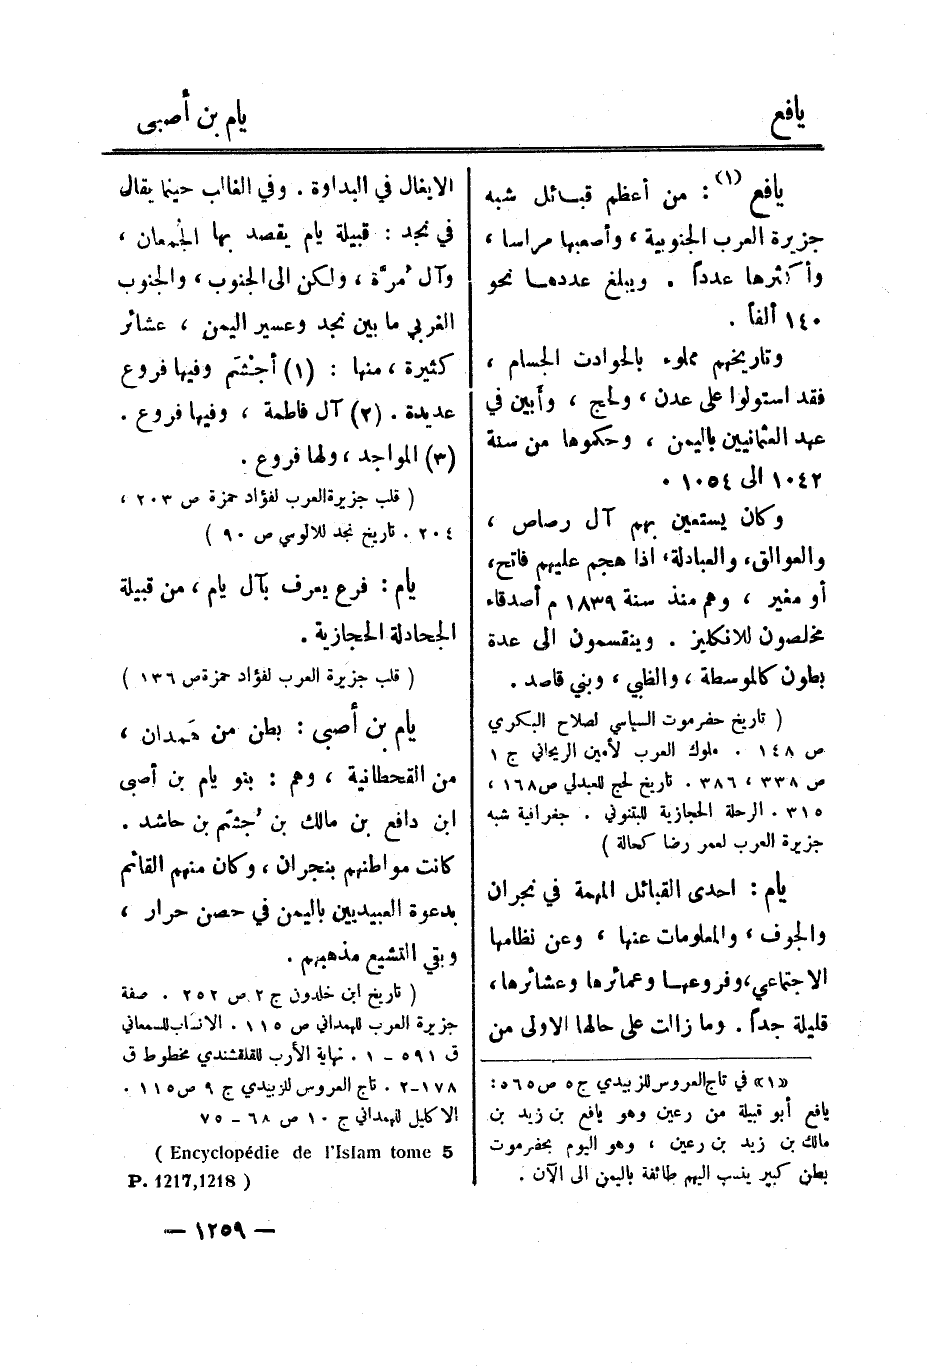 يافع
يام بن أصبى
يافع (١) : من أعظم قبائل شبه
جزيرة العرب الجنوبية ، وأصعبها مراسا ،
وأكثرها عدداً . ويبلغ عددها نحو
١٤٠ ألفاً .
وتاريخهم مملوء بالحوادث الجسام ،
فقد استولوا على عدن ، ولحج ، وأبين في
عهد العثمانيين باليمن ، وحكموها من سنة
١٠٤٢ الى ١٠٥٤ .
وكان يستعين بهم آل رصاص ،
والعوالق، والعبادلة، اذا هجم عليهم فاتح،
أو مغير ، وهم منذ سنة ١٨٣٩ م أصدقاء
مخلصون للانكليز . وينقسمون الى عدة
بطون كالموسطة ، والظبي ، وبني قاصد .
( تاريخ حضرموت السياسي لصلاح البكري
ص ١٤٨ . ملوك العرب لأمين الريحاني ج ١
ص ٣٣٨ ، ٣٨٦ . تاريخ لحج للعبدلي ص١٦٨ ،
٣١٥ . الرحلة الحجازية للبتنوني . جغرافية شبه
جزيرة العرب لعمر رضا كحالة )
يام : احدى القبائل المهمة في نجران
والجوف ، والمعلومات عنها ، وعن نظامها
الاجتماعي،وفروعها وعمائرها وعشائرها،
قليلة جداً . وما زالت على حالها الاولى من
«١» في تاج العروس للزبيدي ج٥ ص٥٦٥ :
يافع أبو قبيلة من رعين وهو يافع بن زيد بن
مالك بن زيد بن رعين ، وهو اليوم بحضرموت
بطن كبير ينسب اليهم طائفة باليمن الى الآن .
الايغال في البداوة . وفي الغالب حينما يقال
في نجد : قبيلة يام يقصد بها الجُمعان ،
وآل مُرّة ، ولكن الى الجنوب ، والجنوب
الغربي ما بين نجد وعسير اليمن ، عشائر
كثيرة ، منها : (١) أجشم وفيها فروع
عديدة . (٢) آل فاطمة ، وفيها فروع .
(٣) المواجد ، ولها فروع .
( قلب جزيرة العرب لفؤاد حمزة ص ٢٠٣ ،
٢٠٤ . تاريخ نجد للالوسي ص ٩٠ )
يام : فرع يعرف بآل يام ، من قبيلة
الجحادلة الحجازية .
( قلب جزيرة العرب لفؤاد حمزة ص ١٣٦ )
يام بن أصبى : بطن من هَمدان ،
من القحطانية ، وهم : بنو يام بن أصبى
ابن دافع بن مالك بن جُشَم بن حاشد .
كانت مواطنهم بنجران ، وكان منهم القائم
بدعوة العبيديين باليمن في حصن حرار ،
وبقي التشيع مذهبهم .
( تاريخ ابن خلدون ج ٢ ص ٢٥٢ . صفة
جزيرة العرب للهمداني ص ١١٥ . الانساب للسمعاني
ق ٥٩١ - ١ . نهاية الأرب للقلقشندي مخطوط ق
١٧٨-٢ . تاج العروس للزبيدي ج ٩ ص ١١٥ .
الاكليل للهمداني ج ١٠ ص ٦٨ - ٧٥
( Encyclopédie de l'Islam tome 5
P. 1217,1218 )
— ١٢٥٩ —